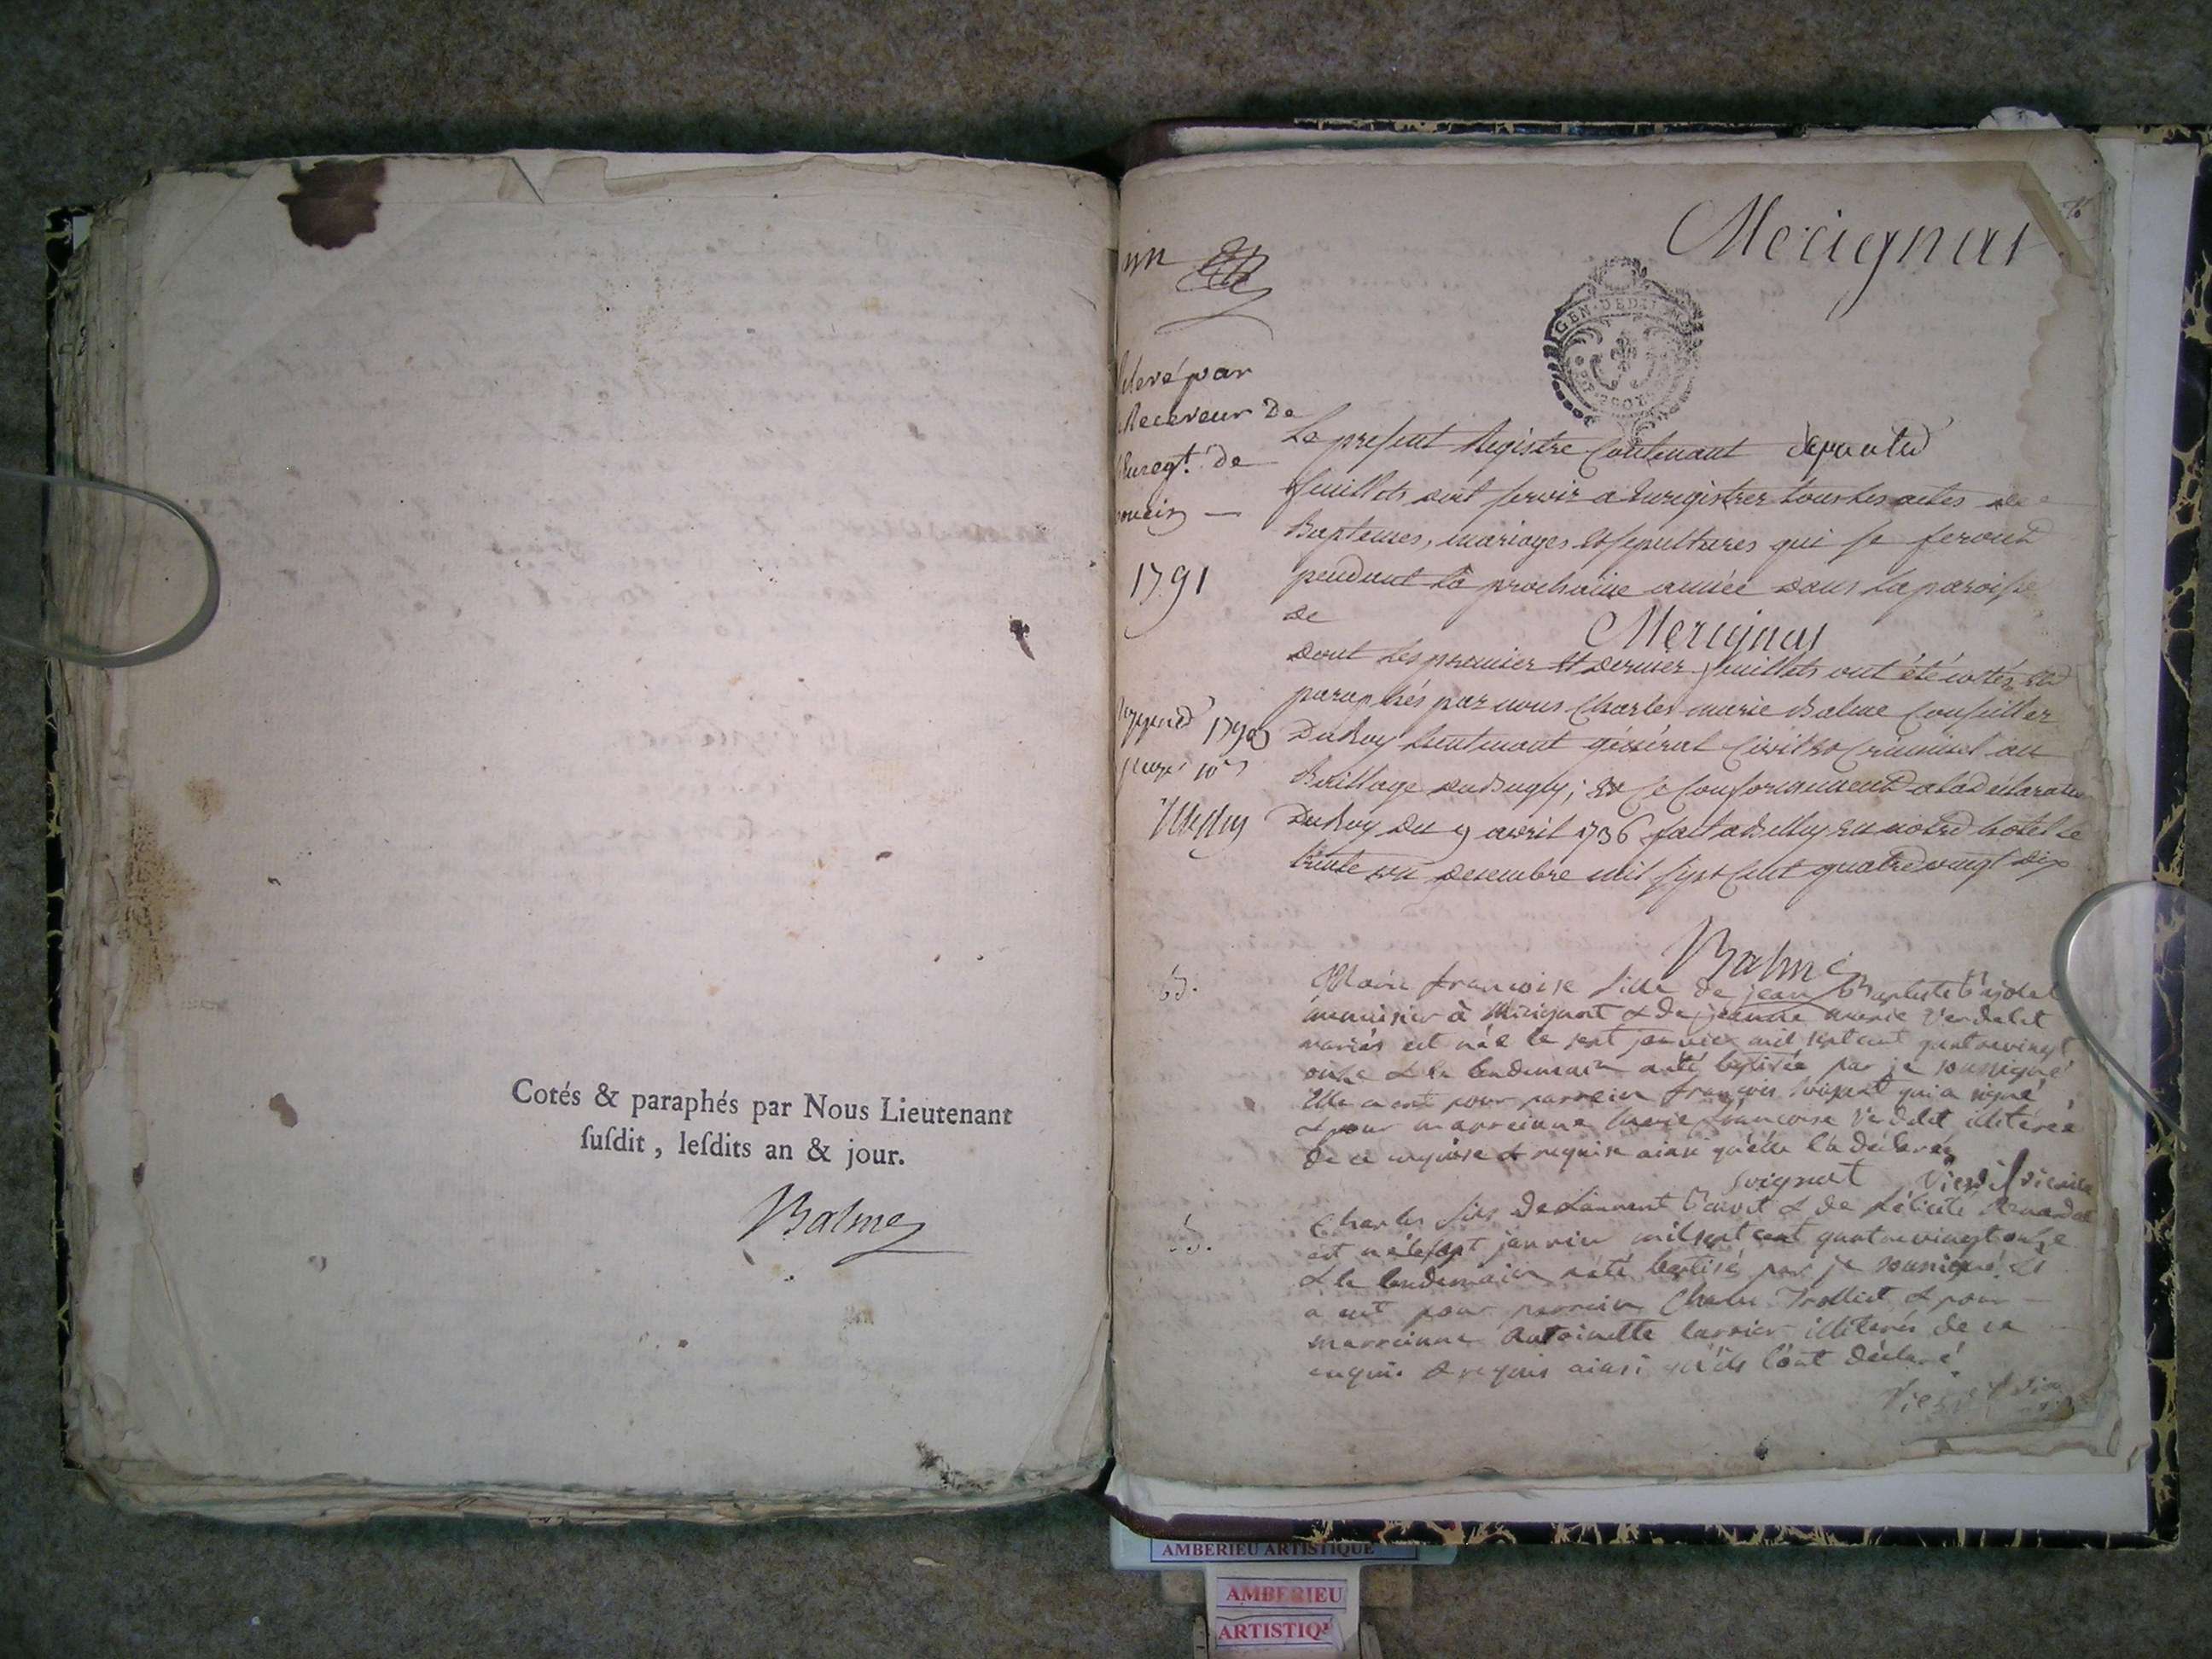 Cotés & paraphés par Nous Lieutenant
ſuſdit, leſdits an & jour.
Balme
Merignat
un
GEN DE DIJON
par
Receveur de
de
1791
1790
Le present Registre Contenant
feuillets doit servir a Enregistrer tous les actes de
Baptemes, mariages Et sepultures qui se feront
pendant la prochaine année dans la paroisse
de
Merignat
dont les premier Et dernier feuillets ont été cottés Et
paraphés par nous Charles marie Balme Conseiller
Du Roy Lieutenant général Civil Et Criminel au
Bailliage du Bugey; Et Ce Conformement a la déclaration
Du Roy du 9 avril 1736 fait a Belley En notre hôtel le
trente un decembre mil sept Cent quatre vingt dix
Balme
B.
Marie francoise fille de jean Baptiste
à Merignat & de jeanne marie Verdelet
mariés est née le sept janvier mil sept cent quatre vingt
onze & le lendemain a été baptisée par je soussigné
Elle a eut pour parrein françois Soignat qui a signé
& pour marreinne marie francoise Verdelet illiterée
de ce enquise & requise ainsi qu'elle l'a déclaré
Soignat
B.
Charles fils de Laurent & de Félicité
est né le sept janvier mil sept cent quatre vingt onze
& le lendemain a été baptisé par je soussigné il
a eut pour parrein Charles Trolliet & pour
marreinne Antoinette illiterés de ce
enquis & requis ainsi qu'ils l'ont déclaré
AMBERIEU ARTISTIQUE
AMBERIEU
ARTISTIQ